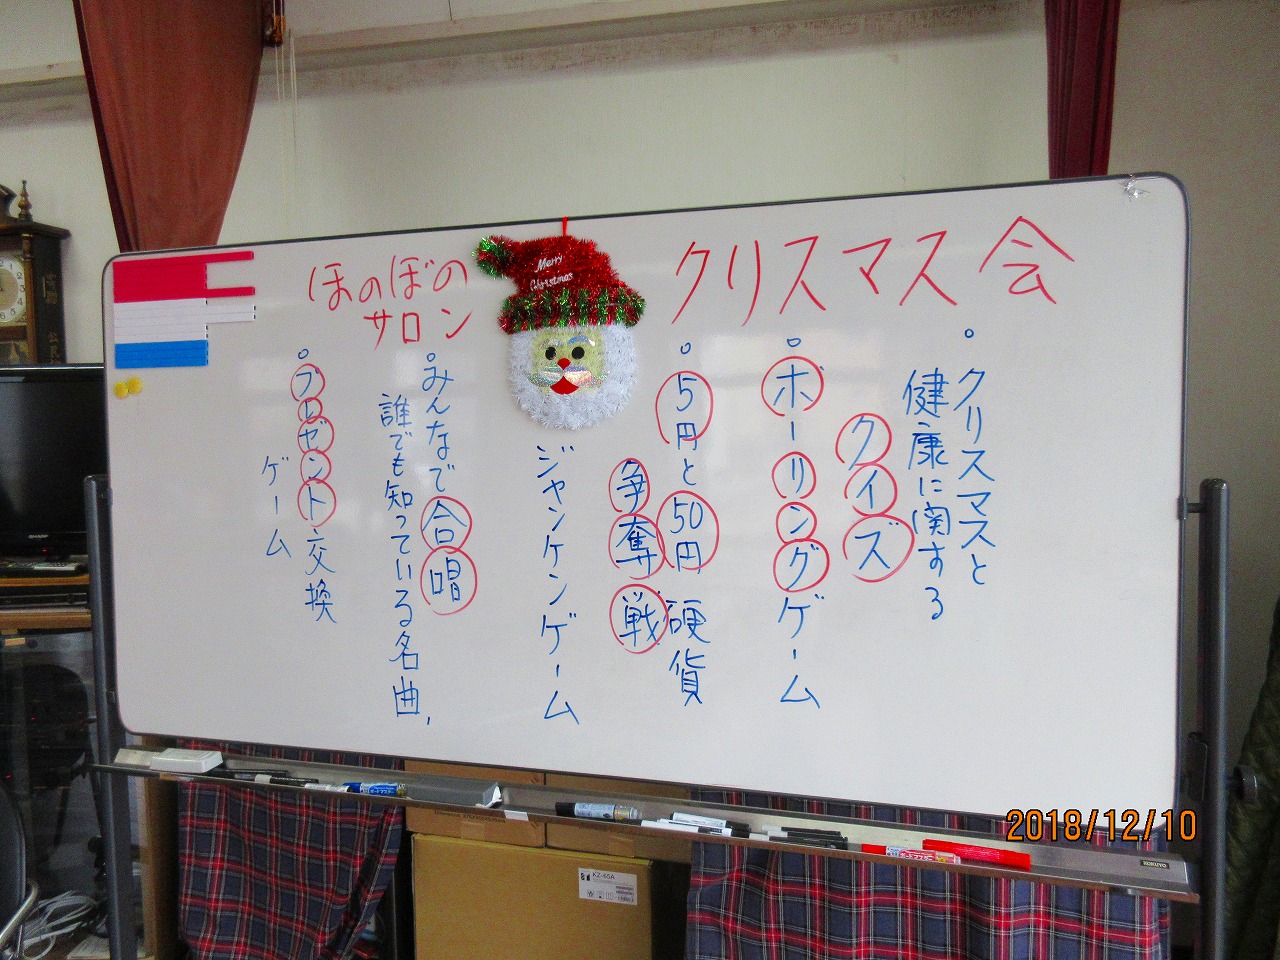 ほのぼの
サロン
Merry
Christmas
クリスマス会
。クリスマスと
健康に関する
クイズ
。ボーリングゲーム
。5円と50円硬貨
争奪戦
ジャンケンゲーム
。みんなで合唱
誰でも知っている名曲,
。プレゼント交換
ゲーム
SHARP
KZ-65A
2018/12/10